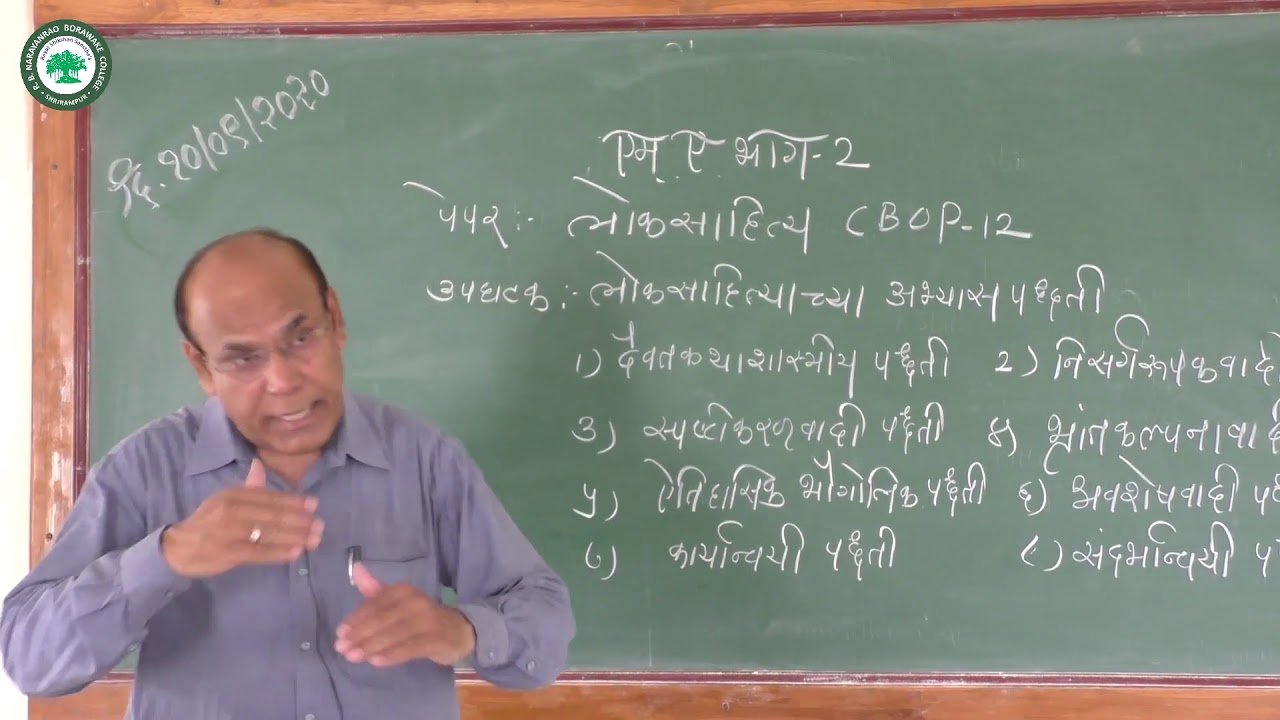 R. B. NARAYANRAO BOROWAKE COLLEGE
Rayat Shikshan Sanstha's
SHRIRAMPUR
दि. १०/०९/२०२०
एम्. ए. भाग - 2
पेपर :- लोकसाहित्य CBOP-12
उपघटक :- लोकसाहित्याच्या अभ्यास पद्धती
1) दैवतकथाशास्त्रीय पद्धती 2) निसर्गरूपकवादी
3) स्पष्टीकरणवादी पद्धती ४) भ्रांतकल्पनावादी
५) ऐतिहासिक भौगोलिक पद्धती ६) अवशेषवादी
७) कार्यान्वयी पद्धती ८) संदर्भान्वियी